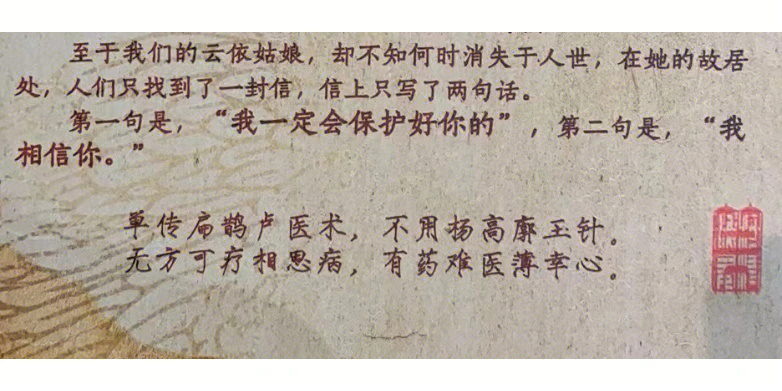 至于我们的云依姑娘，却不知何时消失于人世，在她的故居
处，人们只找到了一封信，信上只写了两句话。
第一句是，“我一定会保护好你的”，第二句是，“我
相信你。”
单传扁鹊卢医术，不用杨高廓玉针。
无方可疗相思病，有药难医薄幸心。